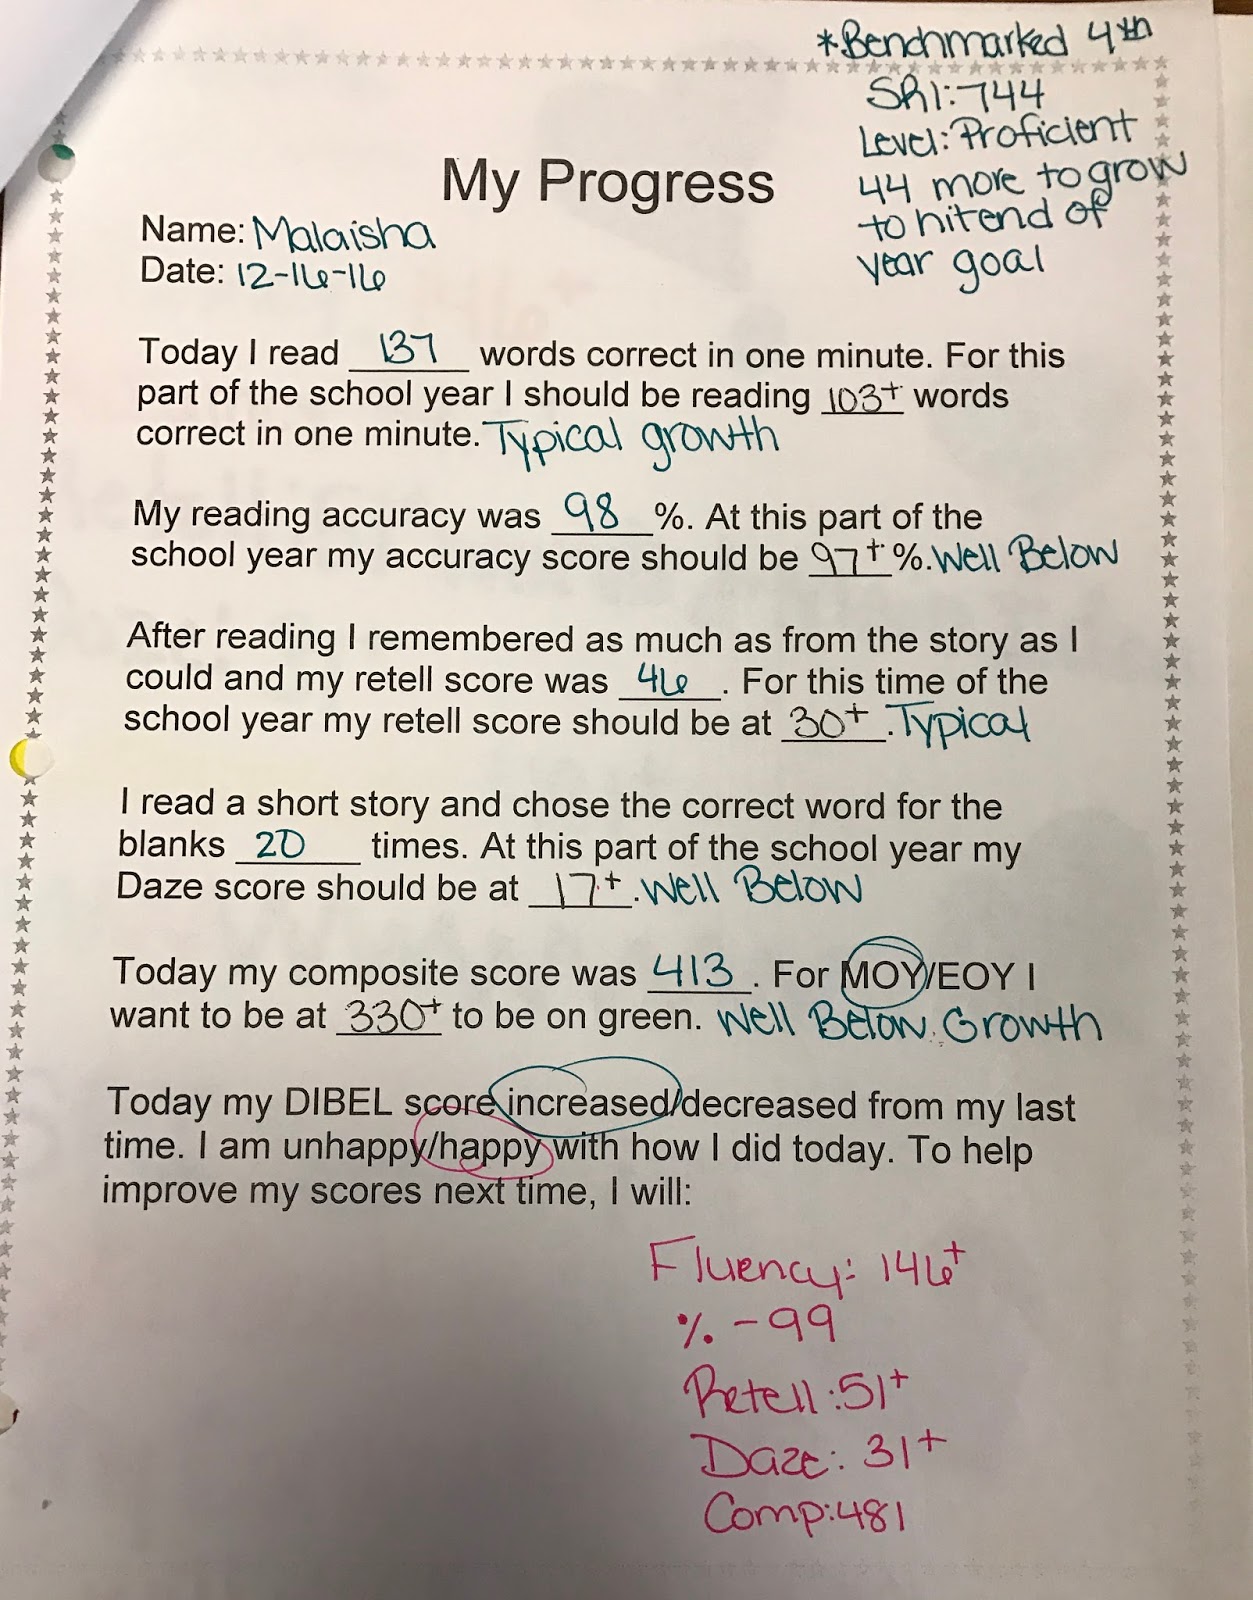 *Benchmarked 4th
SRI: 744
Level: Proficient
44 more to grow
to hit end of
year goal
My Progress
Name: Malaisha
Date: 12-16-16
Today I read 137 words correct in one minute. For this
part of the school year I should be reading 103+ words
correct in one minute. Typical growth
My reading accuracy was 98 %. At this part of the
school year my accuracy score should be 97+ %. Well Below
After reading I remembered as much as from the story as I
could and my retell score was 46. For this time of the
school year my retell score should be at 30+. Typical
I read a short story and chose the correct word for the
blanks 20 times. At this part of the school year my
Daze score should be at 17+. Well Below
Today my composite score was 413. For MOY/EOY I
want to be at 330+ to be on green. Well Below Growth
Today my DIBEL score increased/decreased from my last
time. I am unhappy/happy with how I did today. To help
improve my scores next time, I will:
Fluency: 146+
% - 99
Retell: 51+
Daze: 31+
Comp: 481